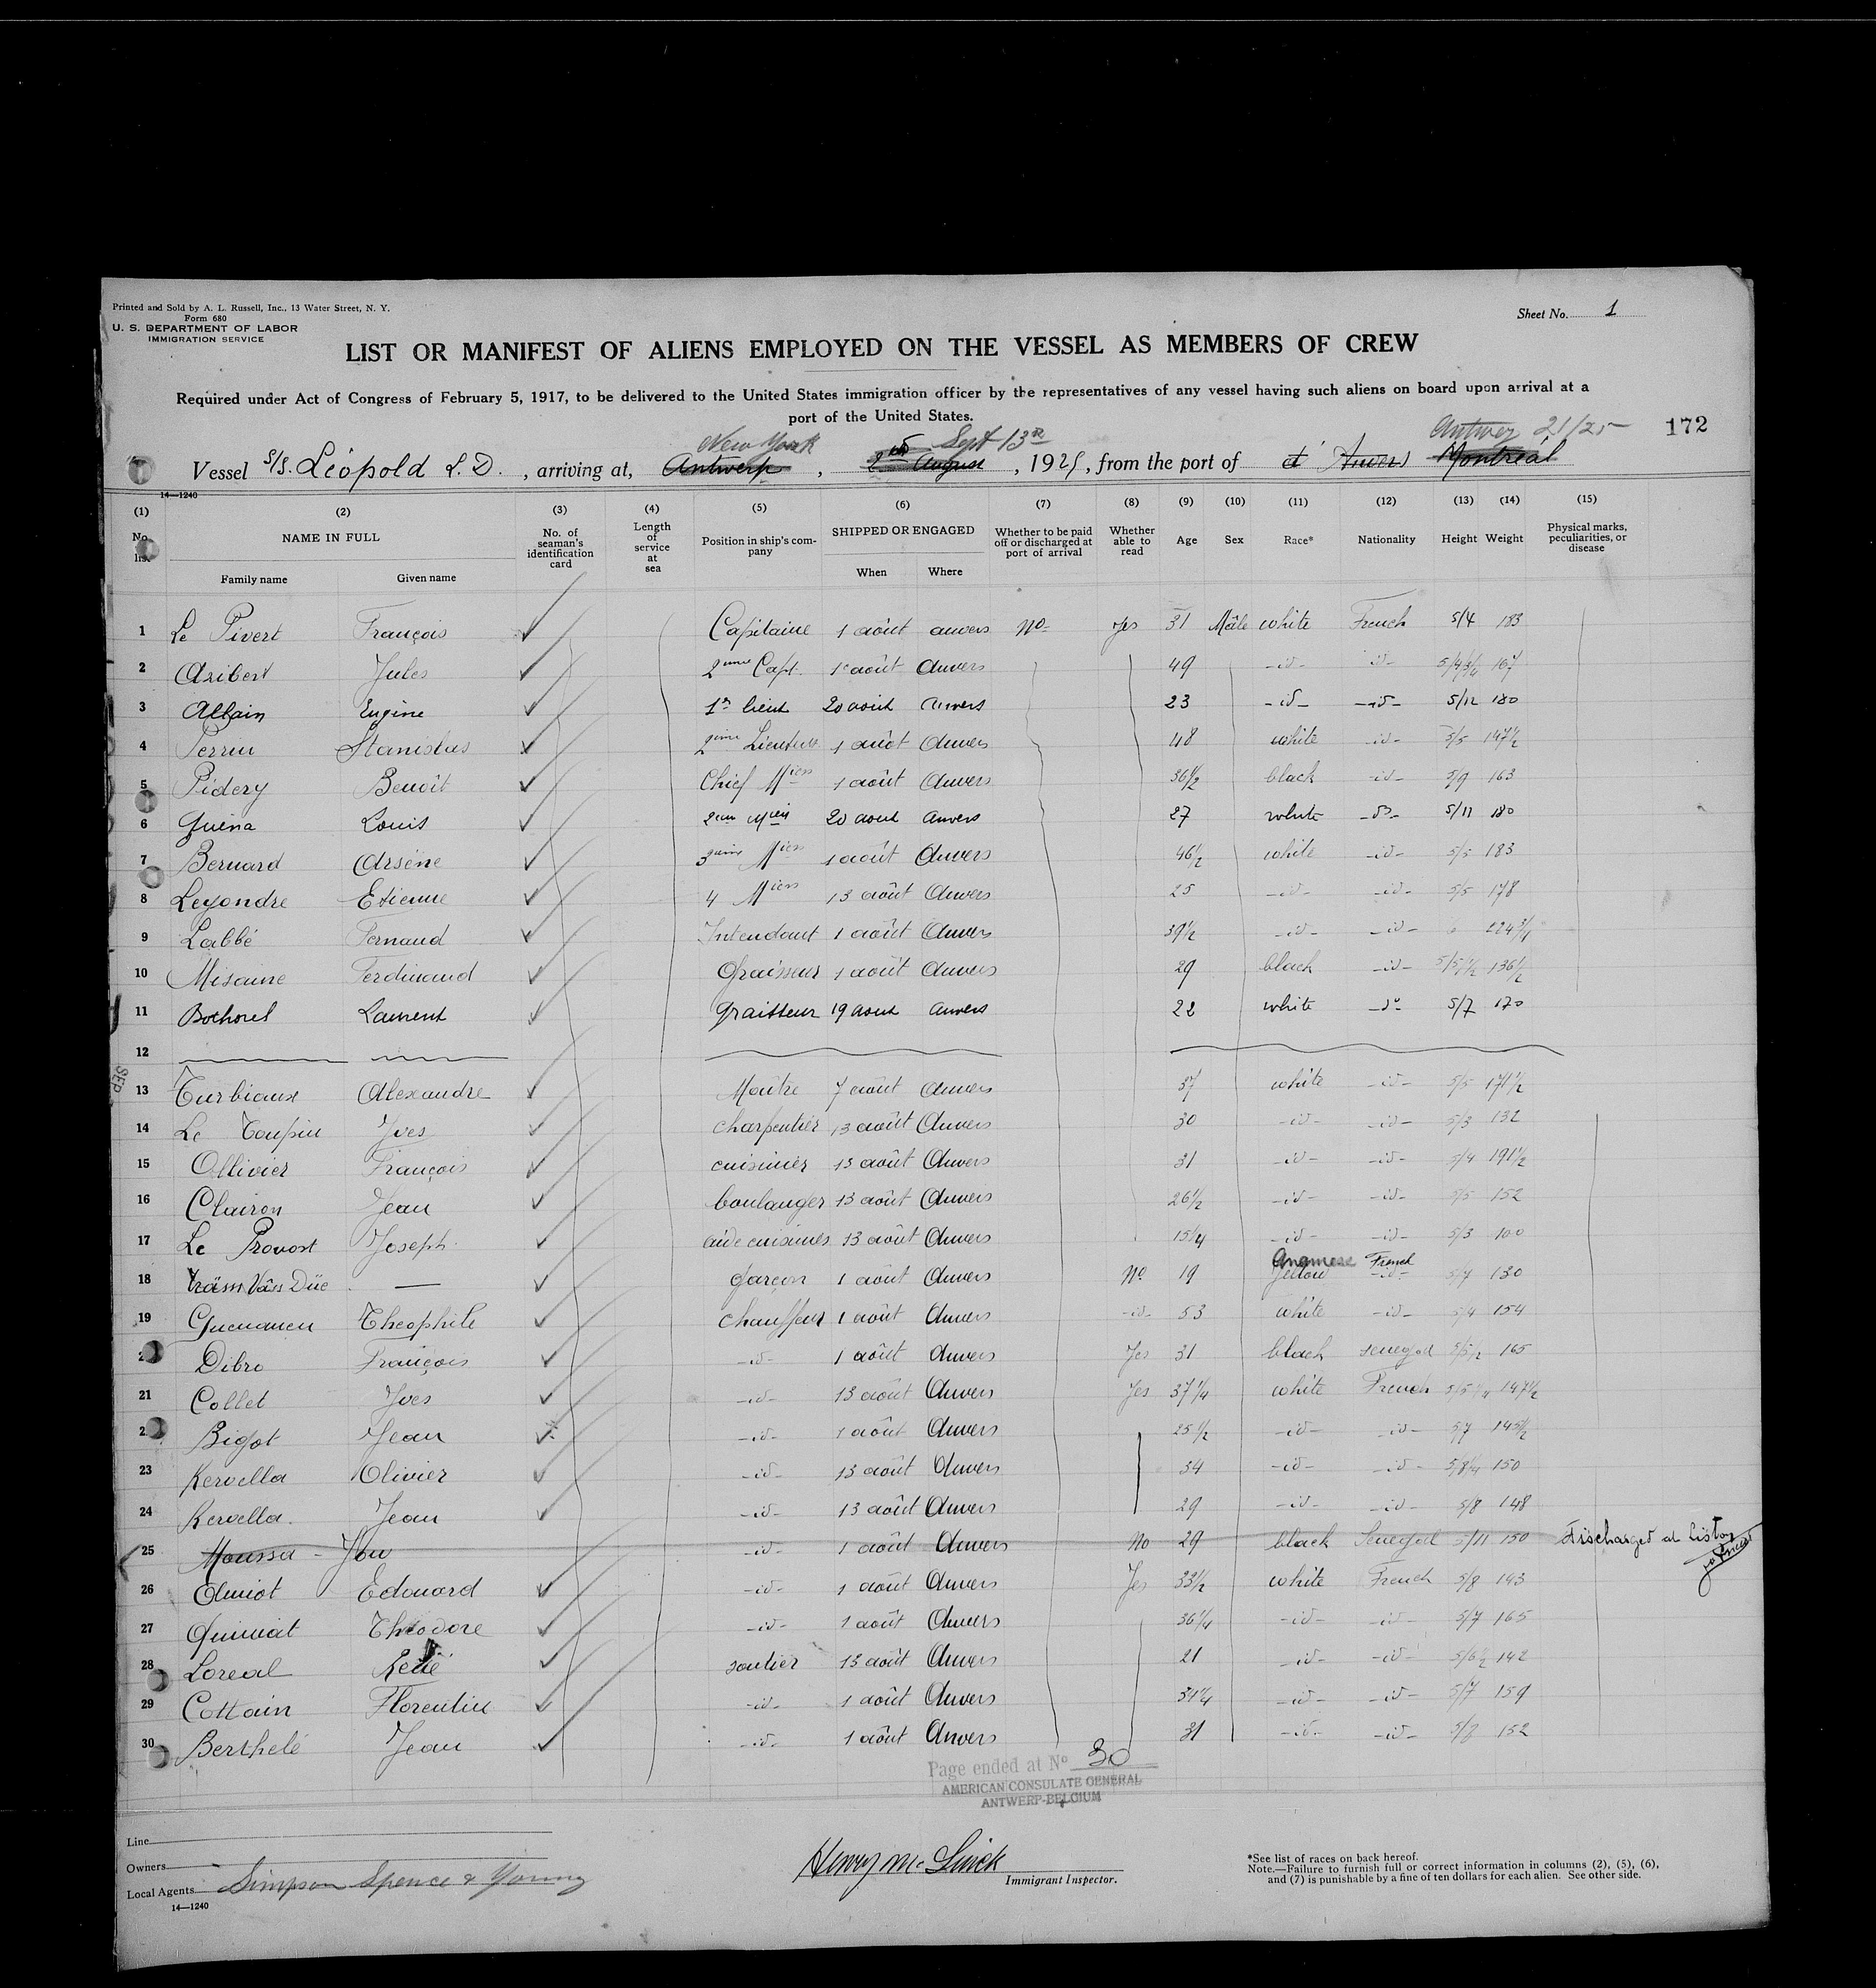 Printed and Sold by A. L. Russell, Inc., 13 Water Street, N. Y.
Form 680
U. S. DEPARTMENT OF LABOR
IMMIGRATION SERVICE
Sheet No. 1
LIST OR MANIFEST OF ALIENS EMPLOYED ON THE VESSEL AS MEMBERS OF CREW
Required under Act of Congress of February 5, 1917, to be delivered to the United States immigration officer by the representatives of any vessel having such aliens on board upon arrival at a
port of the United States.
172
New York Sept 13th Antwerp 21/25
Vessel S/S. Léopold L. D., arriving at, Antwerp, 2nd August, 1925, from the port of Anvers Montréal
14—1240
(1) (2) (3) (4) (5) (6) (7) (8) (9) (10) (11) (12) (13) (14) (15)
No. list NAME IN FULL No. of seaman's identification card Length of service at sea Position in ship's company SHIPPED OR ENGAGED Whether to be paid off or discharged at port of arrival Whether able to read Age Sex Race* Nationality Height Weight Physical marks, peculiarities, or disease
Family name Given name When Where
1 Le Pivert François Capitaine 1 août anvers No- Yes 31 Mâle white French 5/4 183
2 Aribert Jules 2ème Capt. 1er août Anvers 49 -id- -id- 5/4 3/4 167
3 Allain Eugène 1er lieut 20 août Anvers 23 -id- -id- 5/12 180
4 Perrin Stanislas 2ème Lieuten 1 août Anvers 48 white -id- 5/5 147 1/2
5 Pidery Benoît Chief Mien 1 août Anvers 36 1/2 black -id- 5/9 163
6 Guéna Louis 2em Mien 20 aout anvers 27 white -do- 5/11 180
7 Bernard Arsène 3ème Mien 1 août Anvers 46 1/2 white -id- 5/5 183
8 Leyondre Etienne 4 Mien 13 août Anvers 25 -id- -id- 5/5 178
9 Labbé Fernand Intendant 1 août Anvers 39 1/2 -id- -id- 6 224 3/4
10 Misaine Ferdinand Graisseur 1 août Anvers 29 black -id- 5/5 1/2 136 1/2
11 Bothorel Laurent graisseur 19 aout anvers 22 white -do- 5/7 170
12
13 Turbiaux Alexandre Maître 7 août Anvers 37 white -id- 5/5 171 1/2
14 Le Toupin Yves charpentier 13 août Anvers 30 -id- -id- 5/3 132
15 Ollivier François cuisinier 13 août Anvers 31 -id- -id- 5/4 191 1/2
16 Clairon Jean boulanger 13 août Anvers 26 1/2 -id- -id- 5/5 152
17 Le Provost Joseph aide cuisinier 13 août Anvers 15 1/4 -id- -id- 5/3 100
Anamese French
18 Trâm Van Düc — garçon 1 août Anvers No 19 Yellow -id- 5/4 130
19 Guenanen Théophile chauffeur 1 août Anvers -id- 53 white -id- 5/4 154
Dibro François -id- 1 août Anvers Yes 31 black senegal 5/5 1/2 165
21 Collet Yves -id- 13 août Anvers Yes 37 1/4 white French 147 1/2
Bigot Jean -id- 1 août Anvers 25 1/2 -id- -id- 5/7 145 1/2
23 Kervella Olivier -id- 13 août Anvers 34 -id- -id- 5/8 1/4 150
24 Kervella Jean -id- 13 août Anvers 29 -id- -id- 5/8 148
25 Moussa - -id- 1 août Anvers No 29 black Senegal 5/11 150 Discharged at
26 Edouard -id- 1 août Anvers Yes 33 1/2 white French 5/8 143
27 Quiniat Théodore -id- 1 août Anvers 36 1/4 -id- -id- 5/7 165
28 Loreal René soutier 13 août Anvers 21 -id- -id- 5/6 1/2 142
29 Cottain Florentin -id- 1 août Anvers 31 1/4 -id- -id- 5/7 159
30 Berthelé Jean -id- 1 août Anvers 31 -id- -id- 5/8 152
SEP
Page ended at No 30
AMERICAN CONSULATE GENERAL
ANTWERP-BELGIUM
Line
Owners
Local Agents Simpson Spence & Young
14—1240
Henry Mc
Immigrant Inspector.
*See list of races on back hereof.
Note.—Failure to furnish full or correct information in columns (2), (5), (6),
and (7) is punishable by a fine of ten dollars for each alien. See other side.